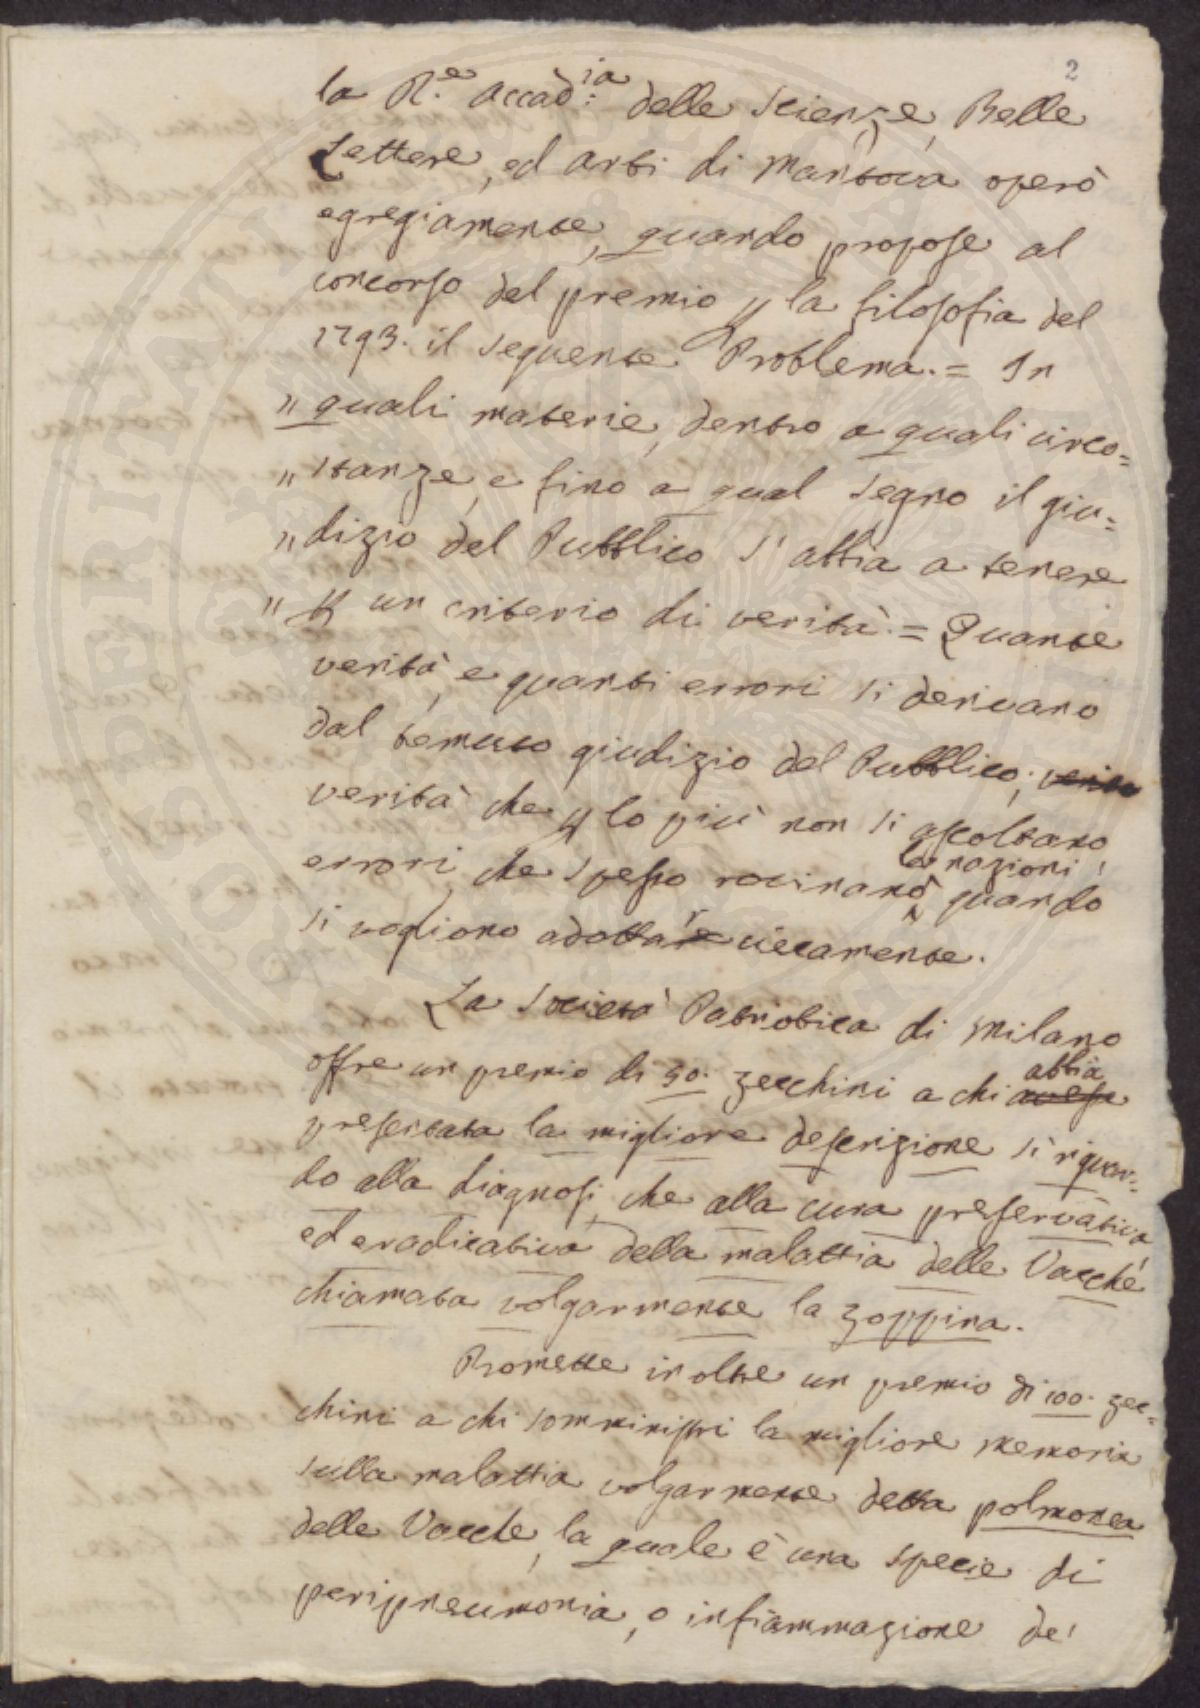 2
la R.e Accad:ia delle Scienze, Belle
Lettere, ed Arti di Mantova operò
egregiamente, quando propose al
concorso del premio per la filosofia del
1793. il seguente Problema. = In
" quali materie, dentro a quali circo=
" stanze, e fino a qual segno il giu=
" dizio del Pubblico s'abbia a tenere
" per un criterio di verità. = Quante
verità, e quanti errori si derivano
dal temuto giudizio del Pubblico;
verità che per lo più non si ascoltano,
errori, che spesso rovinano le nazioni, quando
si vogliono adottar ciecamente.
La Società Patriotica di Milano
offre un premio di 50. zecchini a chi abbia avesse
presentata la migliore descrizione sì riguar=
do alla diagnosi, che alla cura preservativa
ed eradicativa della malattia delle Vacche
chiamata volgarmente la zoppina.
Promette inoltre un premio di 100. zec=
chini a chi somministri la migliore memoria
sulla malattia volgarmente detta polmonea
delle Vacche, la quale è una specie di
peripneumonia, o infiammazione de'